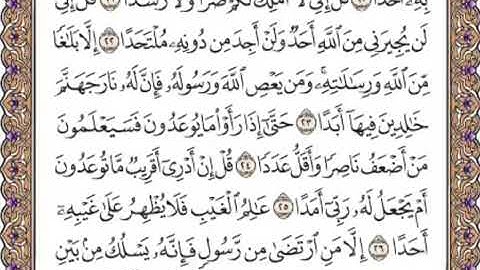 بِهِۦٓ أَحَدًا ٢٠ قُلْ إِنِّى لَآ أَمْلِكُ لَكُمْ ضَرًّا وَلَا رَشَدًا ٢١ قُلْ إِنِّى
لَن يُجِيرَنِى مِنَ ٱللَّهِ أَحَدٌ وَلَنْ أَجِدَ مِن دُونِهِۦ مُلْتَحَدًا ٢٢ إِلَّا بَلَٰغًا
مِّنَ ٱللَّهِ وَرِسَٰلَٰتِهِۦ ۚ وَمَن يَعْصِ ٱللَّهَ وَرَسُولَهُۥ فَإِنَّ لَهُۥ نَارَ جَهَنَّمَ
خَٰلِدِينَ فِيهَآ أَبَدًا ٢٣ حَتَّىٰٓ إِذَا رَأَوْا۟ مَا يُوعَدُونَ فَسَيَعْلَمُونَ
مَنْ أَضْعَفُ نَاصِرًا وَأَقَلُّ عَدَدًا ٢٤ قُلْ إِنْ أَدْرِىٓ أَقَرِيبٌ مَّا تُوعَدُونَ
أَمْ يَجْعَلُ لَهُۥ رَبِّىٓ أَمَدًا ٢٥ عَٰلِمُ ٱلْغَيْبِ فَلَا يُظْهِرُ عَلَىٰ غَيْبِهِۦٓ
أَحَدًا ٢٦ إِلَّا مَنِ ٱرْتَضَىٰ مِن رَّسُولٍ فَإِنَّهُۥ يَسْلُكُ مِنۢ بَيْنِ